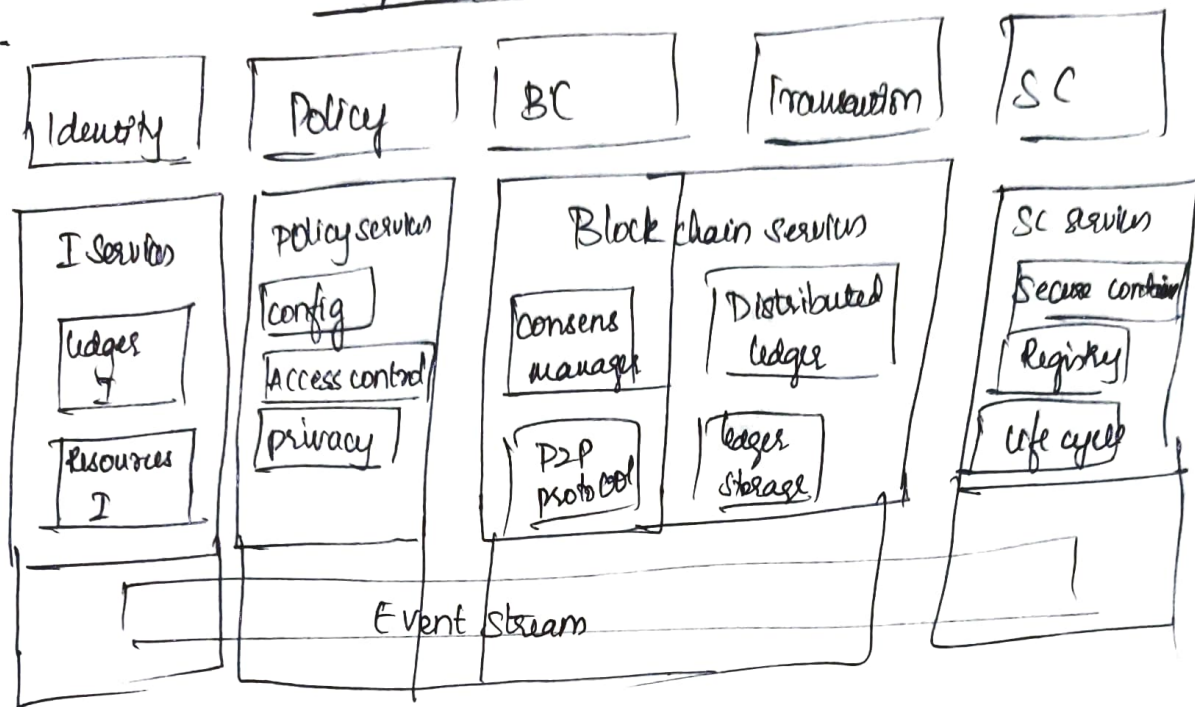 Identity
Policy
BC
Transaction
SC
I Services
ledger
I
Resources
I
policy services
config
Access control
privacy
Block chain services
consens
manager
P2P
protocol
Distributed
ledger
ledger
storage
SC services
Secure contain
Registry
life cycle
Event stream